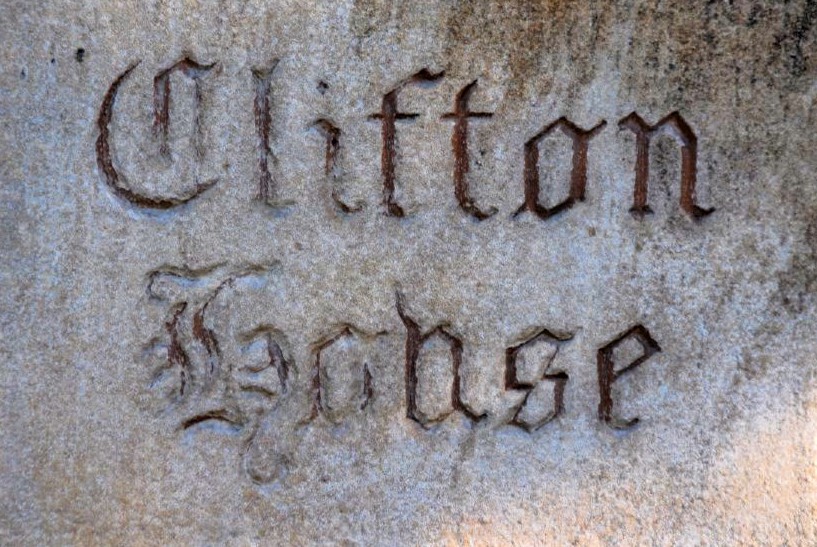 Clifton
House